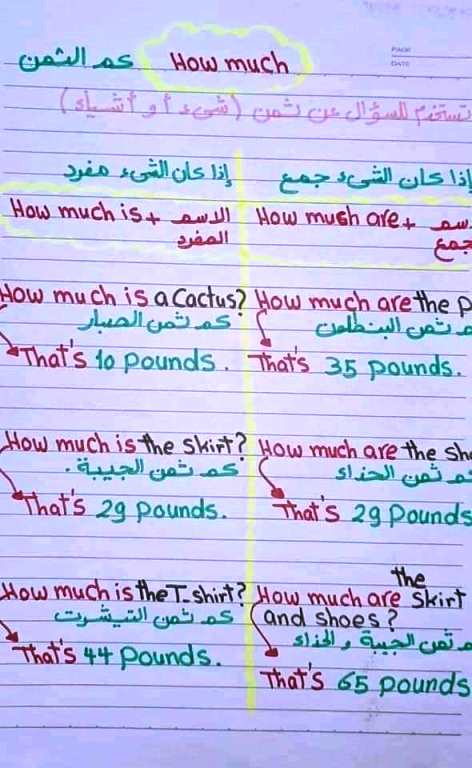 How much كم الثمن
PAGE
DATE
تستخدم للسؤال عن ثمن (شىء أو أشياء)
إذا كان الشىء مفرد
How much is + الاسم
المفرد
How much is a Cactus?
كم ثمن الصبار
That's 10 pounds.
How much is the skirt?
كم ثمن الجيبة.
That's 29 pounds.
How much is the T.shirt?
كم ثمن التيشرت
That's 44 pounds.
إذا كان الشىء جمع
How mush are +
جمع
How much are the
ثمن البنطلون
That's 35 pounds.
How much are the
ثمن الحذاء
That's 29 pounds
the
How much are skirt
and shoes?
ثمن الجيبة والحذاء
That's 65 pounds